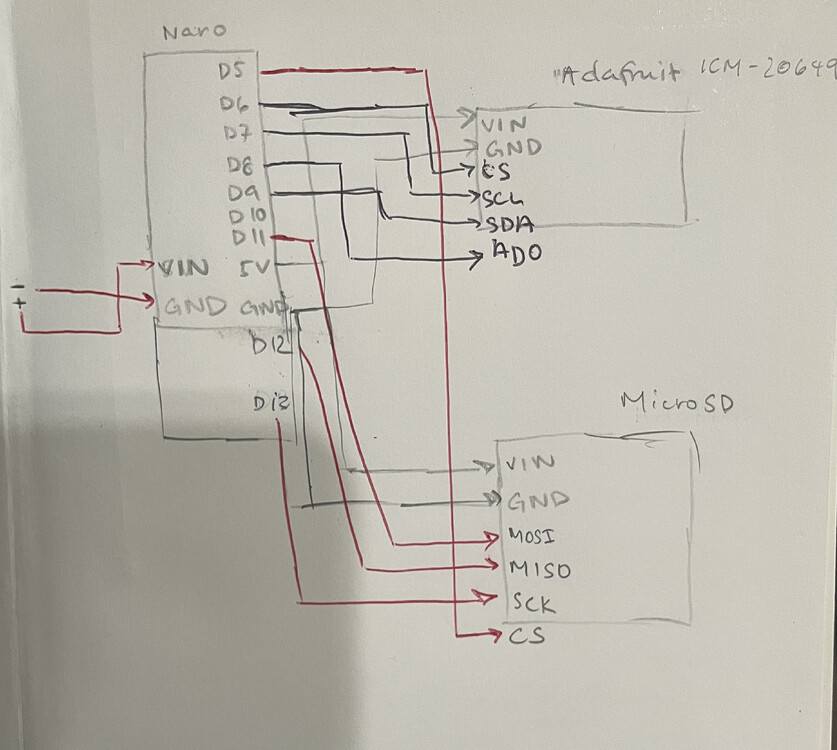 Nano
D5
D6
D7
D8
D9
D10
D11
VIN 5V
GND GND
D12
D13
-
+
"Adafruit ICM-20649
VIN
GND
CS
SCL
SDA
ADO
MicroSD
VIN
GND
MOSI
MISO
SCK
CS